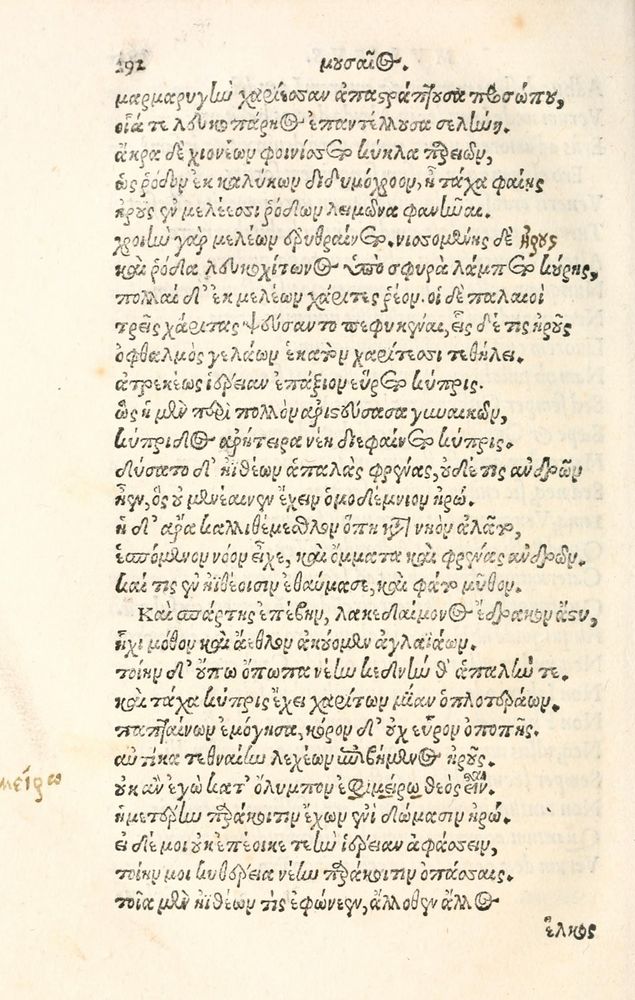 192 μουσαῖος.
μαρμαρυγὴν χαρίεσσαν ἀπαστράπτουσα προσώπου,
οἷά τε λευκοπάρηος ἐπαντέλλουσα σελήνη.
ἄκρα δὲ χιονέων φοινίσσετο κύκλα παρειῶν,
ὡς ῥόδον ἐκ καλύκων διδυμόχροον, ἢ τάχα φαίης
ἡροῦς ἐν μελέεσσι ῥόδων λειμῶνα φανῆναι.
χροιὴν γὰρ μελέων ἐρυθραίνετο. νισσομένης δὲ ἡροῦς
καὶ ῥόδα λευκοχίτωνος ὑπὸ σφυρὰ λάμπετο κύρης,
πολλαὶ δ' ἐκ μελέων χάριτες ῥέον. οἱ δὲ παλαιοὶ
τρεῖς χάριτας ψεύσαντο πεφυκῆναι, εἷς δέ τις ἡροῦς
ὀφθαλμὸς γελάων ἑκατὸν χαρίτεσσι τεθήλει.
ἀτρεκέως ἱέρειαν ἐπάξιον εὕρετο κύπρις.
ὣς ἡ μὲν περὶ πολλὸν ἀριστεύσασα γυναικῶν,
κύπριδος ἀρήτειρα νέη διεφαίνετο κύπρις.
δύσατο δ' ἠϊθέων ἁπαλὰς φρένας, οὐδέ τις ἀνδρῶν
ἦεν, ὃς οὐ μενέαινεν ἔχειν ὁμοδέμνιον ἡρώ.
ἡ δ' ἄρα καλλιθέμεθλον ὅπη κατὰ νηὸν ἀλᾶτο,
ἑσπόμενον νόον εἶχε, καὶ ὄμματα καὶ φρένας ἀνδρῶν.
καί τις ἐν ἠϊθέοισιν ἐθαύμασε, καὶ φάτο μῦθον.
Καὶ σπάρτης ἐπέβην, λακεδαίμονος ἔδρακον ἄστυ,
ἧχι μόθον καὶ ἄεθλον ἀκούομεν ἀγλαϊάων.
τοίην δ' οὔπω ὄπωπα νέην κεδνήν θ' ἁπαλήν τε.
καὶ τάχα κύπρις ἔχει χαρίτων μίαν ὁπλοτεράων.
παπταίνων ἐμόγησα, κόρον δ' οὐχ εὗρον ὀπωπῆς.
αὐτίκα τεθναίην λεχέων ἐπιβήμενος ἡροῦς.
οὐκ ἂν ἐγὼ κατ' ὄλυμπον ἐφιμείρω θεὸς εἶναι
μείρω
ἡμετέρην παράκοιτιν ἔχων ἐνὶ δώμασιν ἡρώ.
εἰ δέ μοι οὐκ ἐπέοικε τεὴν ἱέρειαν ἀφάσσειν,
τοίην μοι κυθέρεια νέην παράκοιτιν ὀπάσσαις.
τοῖα μὲν ἠϊθέων τὶς ἐφώνεεν, ἄλλοθεν ἄλλος
ἕλκος